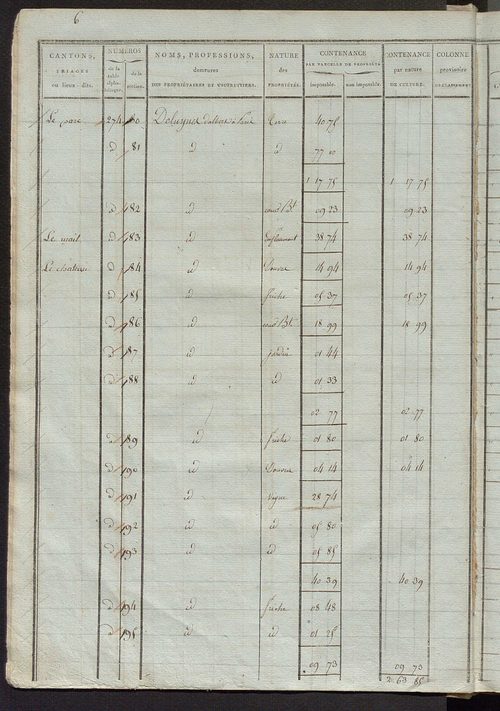 6
CANTONS, NUMÉROS NOMS, PROFESSIONS, NATURE CONTENANCE CONTENANCE COLONNE
TRIAGES de la table alphabétique. de la section. demeures des PAR PARCELLE DE PROPRIÉTÉ par nature provisoire
ou lieux dits. DES PROPRIÉTAIRES ET USUFRUITIERS. PROPRIÉTÉS. imposable. non imposable. DE CULTURE. DE CLASSEMENT.
Le parc 274 80 Deluynes 40 75
d 81 id id 77 00
1 17 75 1 17 75
d 182 id 09 23 09 23
Le mail d 183 id 38 74 38 74
Le chateau d 184 id Douves 14 94 14 94
d 185 id friche 05 37 05 37
d 186 id 18 99 18 99
d 187 id jardin 01 44
d 188 id id 01 33
02 77 02 77
d 189 id friche 01 80 01 80
d 190 id Douves 04 14 04 14
d 191 id vigne 28 74
d 192 id id 05 80
d 193 id id 05 85
40 39 40 39
d 194 id friche 08 48
d 195 id id 01 25
09 73 09 73
2 63 85